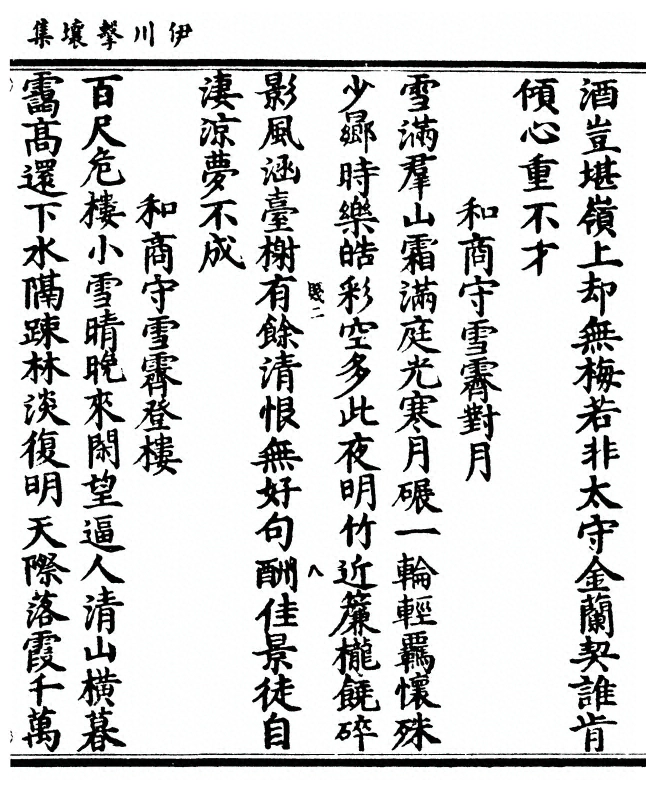 伊川擊壤集
酒豈堪嶺上却無梅若非太守金蘭契誰肯
傾心重不才
和商守雪霽對月
雪滿羣山霜滿庭光寒月碾一輪輕羈懷殊
少曏時樂皓彩空多此夜明竹近簾櫳饒碎
二 八
影風涵臺榭有餘清恨無好句酬佳景徒自
淒涼夢不成
和商守雪霽登樓
百尺危樓小雪晴晚來閑望逼人清山橫暮
靄高還下水隔踈林淡復明天際落霞千萬